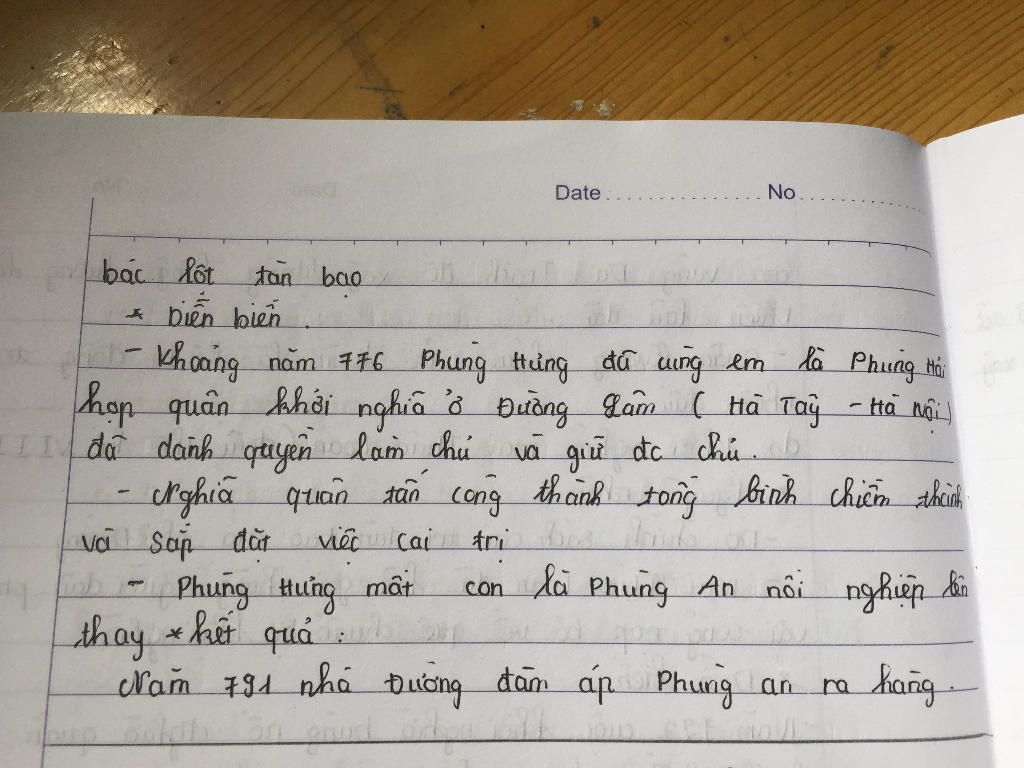 Date ............... No ...............
bác lột tàn bạo
* Diễn biến.
- Khoảng năm 776 Phùng Hưng đã cùng em là Phùng Hải
họp quân khởi nghĩa ở Đường Lâm (Hà Tây - Hà Nội)
đã dành quyền làm chủ và giữ đc chủ.
- Nghĩa quân tấn công thành tống bình chiếm thành
và sắp đặt việc cai trị
- Phùng Hưng mất con là Phùng An nối nghiệp lên
thay * kết quả:
Năm 791 nhà Đường đàn áp Phùng an ra hàng.